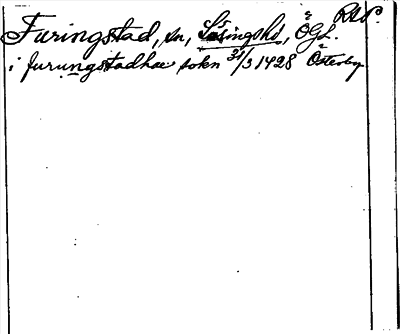 RAp.
Furingstad, sn, Lösingshd, ÖGL.
i furungstadhae sokn 31/3 1428 Österby